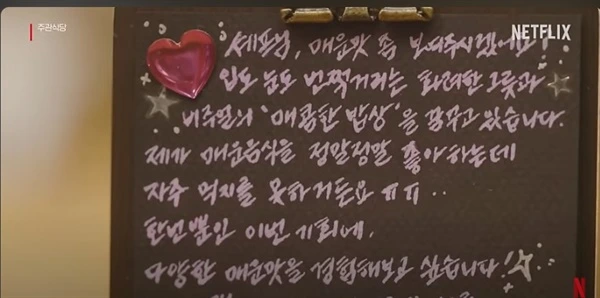 주관식당
NETFLIX
셰프님, 매운맛 좀 보여주시겠어요!
입도 눈도 번쩍거리는 화려한 그릇과
비주얼의 '매콤한 밥상'을 꿈꾸고 있습니다.
제가 매운음식을 정말정말 좋아하는데
자주 먹지를 못하거든요 ㅠㅠ..
한번뿐인 이번 기회에,
다양한 매운맛을 경험해보고 싶습니다!
N